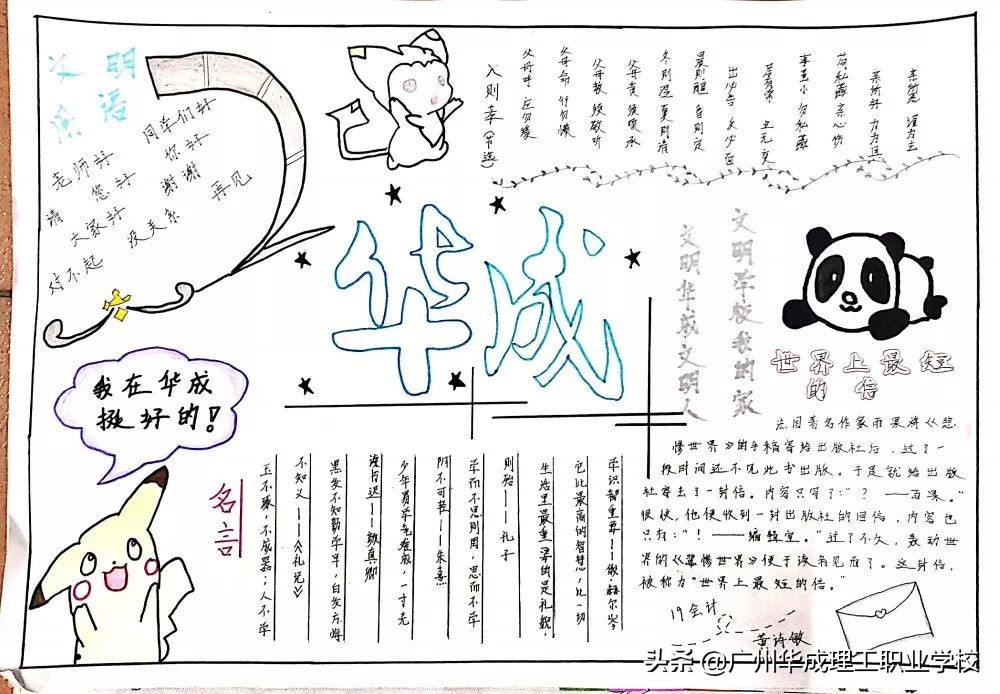 文明
用语
同学们好
老师好
你好
您好
谢谢
请
大家好
再见
没关系
对不起
入则孝(节选)
父母呼 应勿缓
父母命 行勿懒
父母教 须敬听
父母责 须顺承
冬则温 夏则凊
出必告 反必面
勿私藏
苟私藏 亲心伤
亲所好 力为具
亲所恶 谨为去
华成
文明学校我的家
文明华成文明人
我在华成
挺好的!
名言
玉不琢，不成器；人不学
不知义——《礼记》
黑发不知勤学早，白发方悔
读书迟——颜真卿
少年易学老难成，一寸光
阴不可轻——朱熹
学而不思则罔，思而不学
则殆——孔子
生活里最重要的是礼貌，
它比最高的智慧，比一切
学识都重要——赫尔岑
世界上最短
的信
法国著名作家雨果将《悲
惨世界》的手稿寄给出版社后，过了一
段时间还不见此书出版。于是就给出版
社寄去了一封信。内容只写了:"？——雨果。"
很快，他便收到一封出版社的回信，内容也
只有:"！——编辑室。"过了不久，轰动世
界的《悲惨世界》便于读者见面了。这封信，
被称为"世界上最短的信。"
19会计
黄诗敏
头条 @广州华成理工职业学校